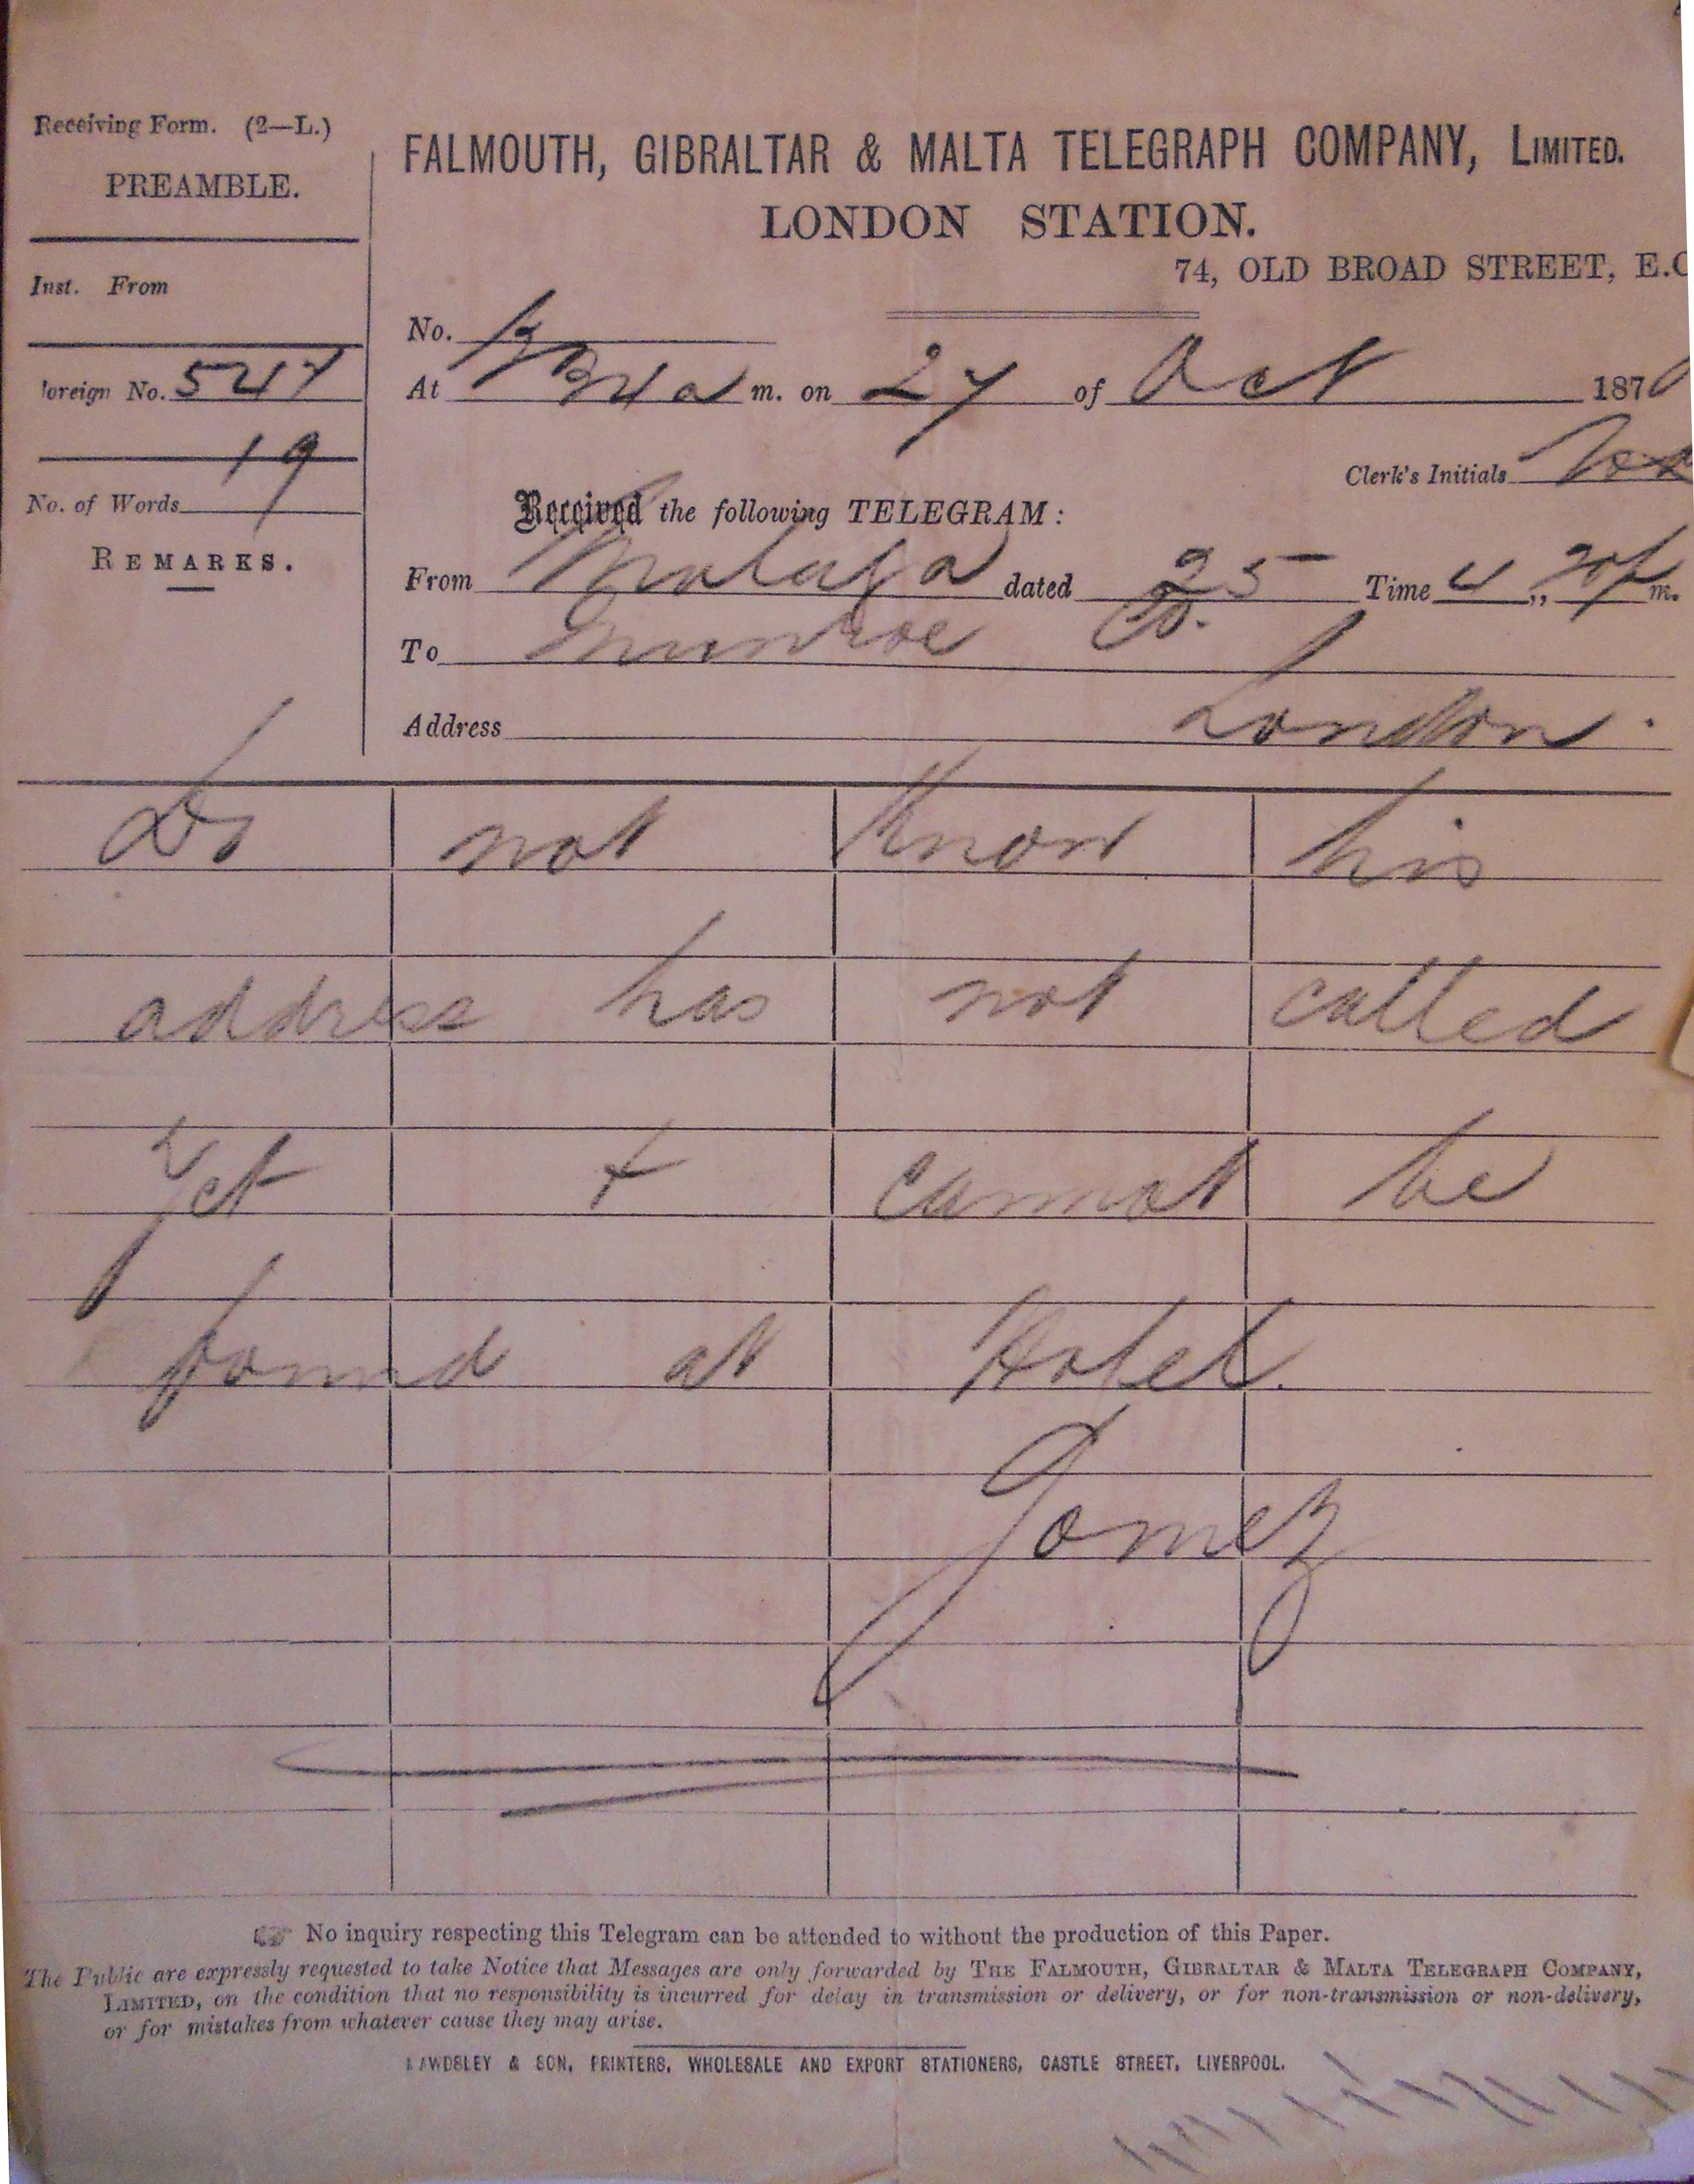 Receiving Form. (2—L.)
PREAMBLE.
Inst. From
Foreign No. 527
19
No. of Words
REMARKS.
FALMOUTH, GIBRALTAR & MALTA TELEGRAPH COMPANY, LIMITED.
LONDON STATION.
74, OLD BROAD STREET, E.C
No.
At m. on 27 of Oct 1870
Clerk's Initials
Received the following TELEGRAM:
From Malaga dated 25 Time 4 „ 20 p m.
To Munroe Co.
Address London.
Do not Know his
address has not called
yet & cannot be
found at Hotel.
Gomez
No inquiry respecting this Telegram can be attended to without the production of this Paper.
The Public are expressly requested to take Notice that Messages are only forwarded by THE FALMOUTH, GIBRALTAR & MALTA TELEGRAPH COMPANY,
LIMITED, on the condition that no responsibility is incurred for delay in transmission or delivery, or for non-transmission or non-delivery,
or for mistakes from whatever cause they may arise.
RAWDSLEY & SON, PRINTERS, WHOLESALE AND EXPORT STATIONERS, CASTLE STREET, LIVERPOOL.